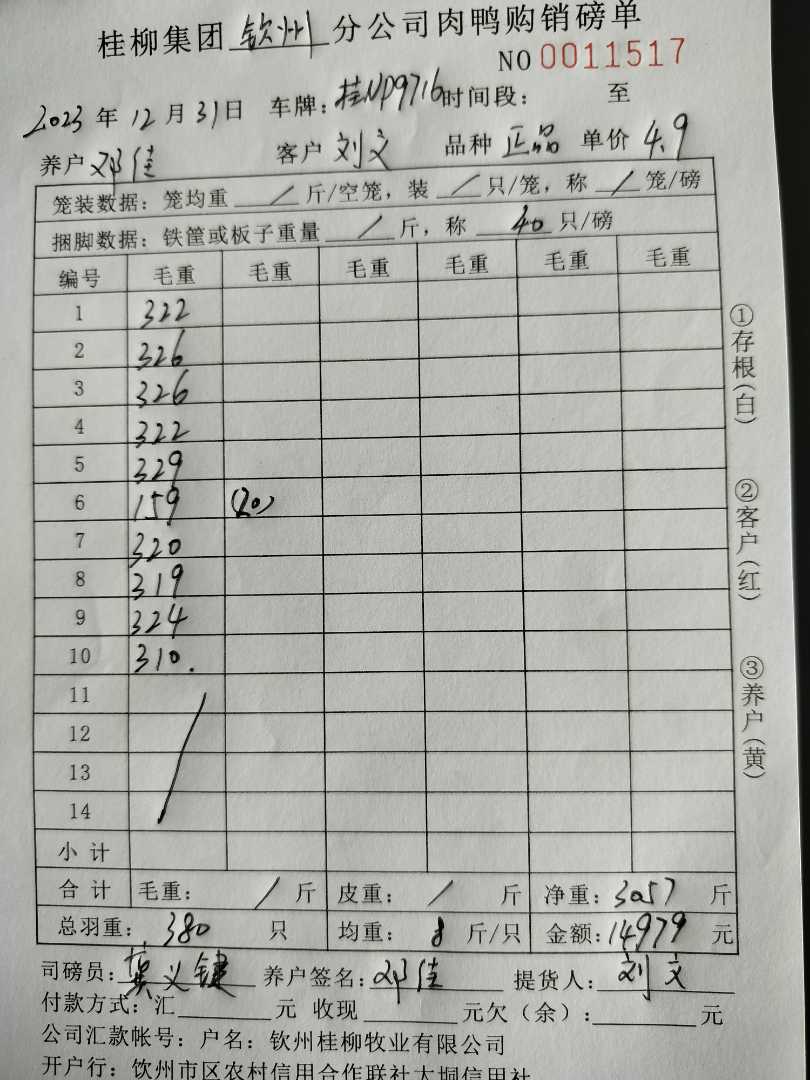 桂柳集团钦州分公司肉鸭购销磅单
NO 0011517
2023年12月31日 车牌：桂NP9716 时间段： 至
养户 邓佳 客户 刘文 品种 正品 单价 4.9
笼装数据：笼均重 / 斤/空笼，装 / 只/笼，称 / 笼/磅
捆脚数据：铁筐或板子重量 / 斤，称 40 只/磅
编号 毛重 毛重 毛重 毛重 毛重 毛重
1 322
2 326
3 326
4 322
5 329
6 159 (20)
7 320
8 319
9 324
10 310.
11
12
13
14
小计
合计 毛重： / 斤 皮重： / 斤 净重：3057 斤
总羽重：380 只 均重：8 斤/只 金额：14979 元
司磅员：莫义键 养户签名：邓佳 提货人：刘文
付款方式：汇 元 收现 元欠（余）： 元
公司汇款帐号：户名：钦州桂柳牧业有限公司
开户行：钦州市区农村信用合作联社大垌信用社
①存根(白)
②客户(红)
③养户(黄)